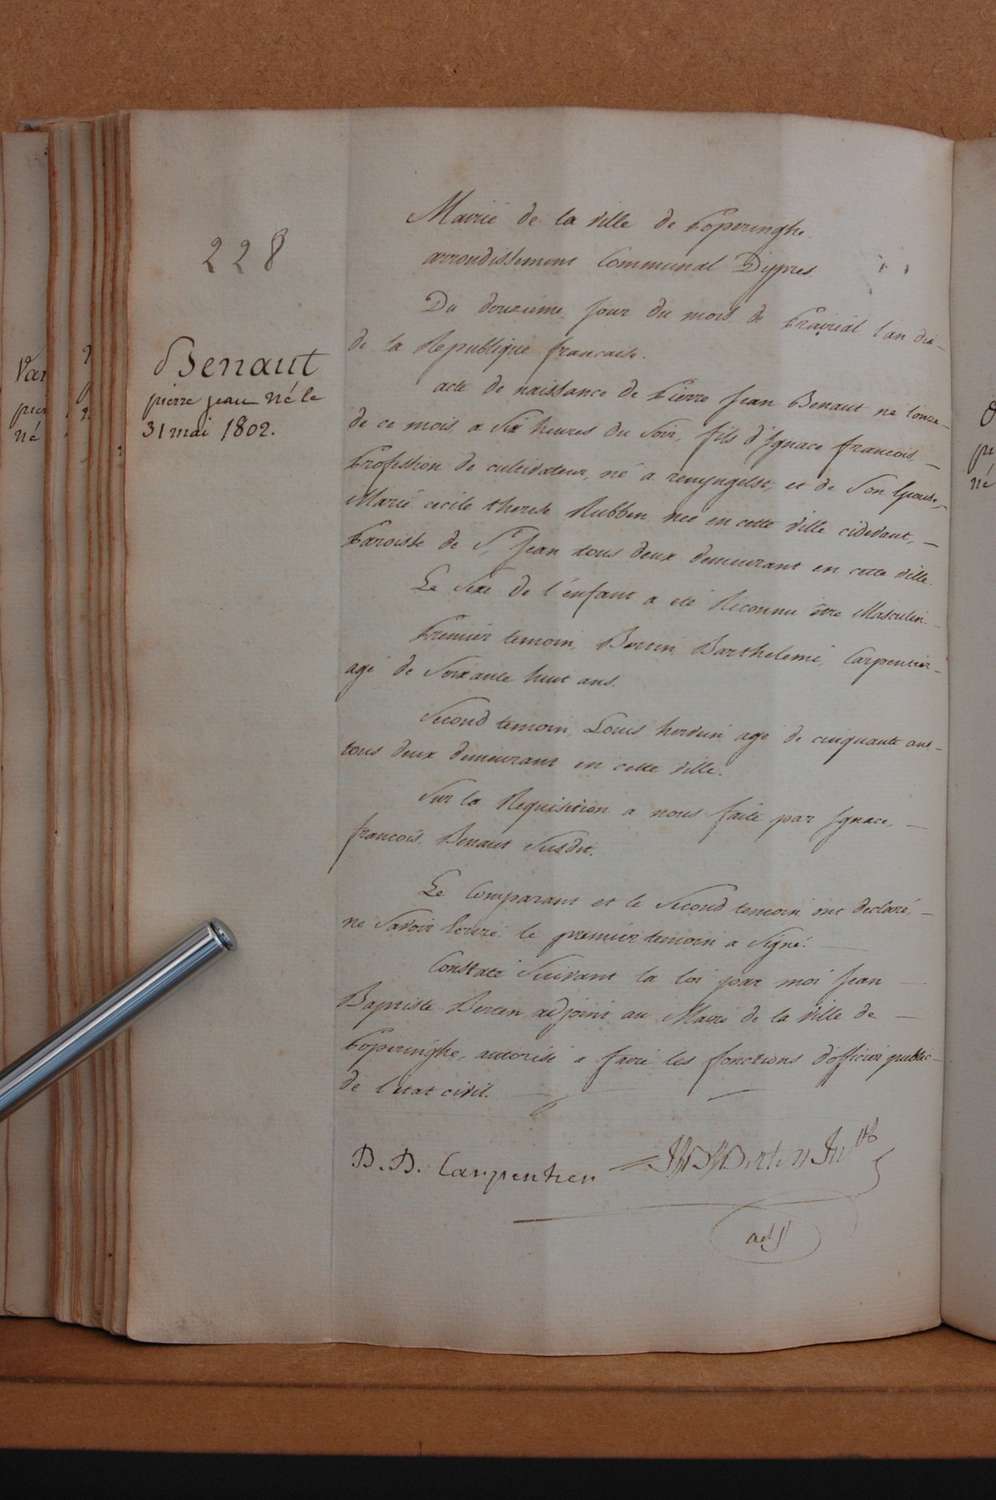 228
Benaut
pierre jean né le
31 mai 1802.
Mairie de la ville de Poperinghe
arrondissement Communal D'ippres
Du douzieme jour du mois de Prairial l'an dix
de la Republique francaise.
acte de naissance de Pierre Jean Benaut ne l'onze
de ce mois a six heures du soir, fils d'Ignace francois
Profession de cultivateur, né a renyngelst, et de son Epouse
Marie cecile therese Rubben nee en cette ville cidevant
Paroisse de St Jean tous deux demeurant en cette ville.
Le sexe de l'enfant a eté Reconnu être Masculin.
Premier temoin, Barthelemi Carpentier
agé de soixante huit ans.
Second temoin, Louis agé de cinquante ans
tous deux demeurant en cette ville.
Sur la Requisition a nous faite par Ignace,
francois Benaut susdit.
Le Comparant et le second temoin ont declaré,
ne savoir le premier temoin a signé.
Constaté suivant la loi par moi Jean
Baptiste Berten adjoint au Maire de la ville de
Poperinghe, autorisé a faire les fonctions d'officier public
de l'etat civil.
B. B. Carpentier
Berten
adj
Van
pie
né
pe
né